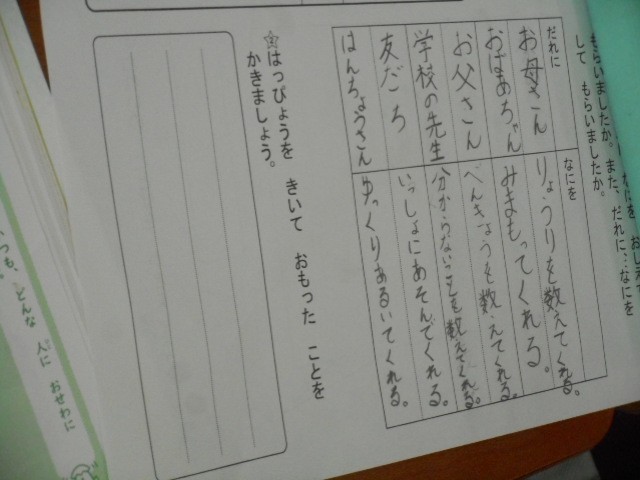 もらいましたか。また、だれに…なにを
して もらいましたか。
だれに
なにを
お母さん
りょうりを教えてくれる。
おばあちゃん
みまもってくれる。
お父さん
べんきょうを教えてくれる。
学校の先生
分からないことを教えてくれる。
友だち
いっしょにあそんでくれる。
はんちょうさん
ゆっくりあるいてくれる。
☆はっぴょうを きいて おもった ことを
かきましょう。
いつも、どんな 人に おせわに